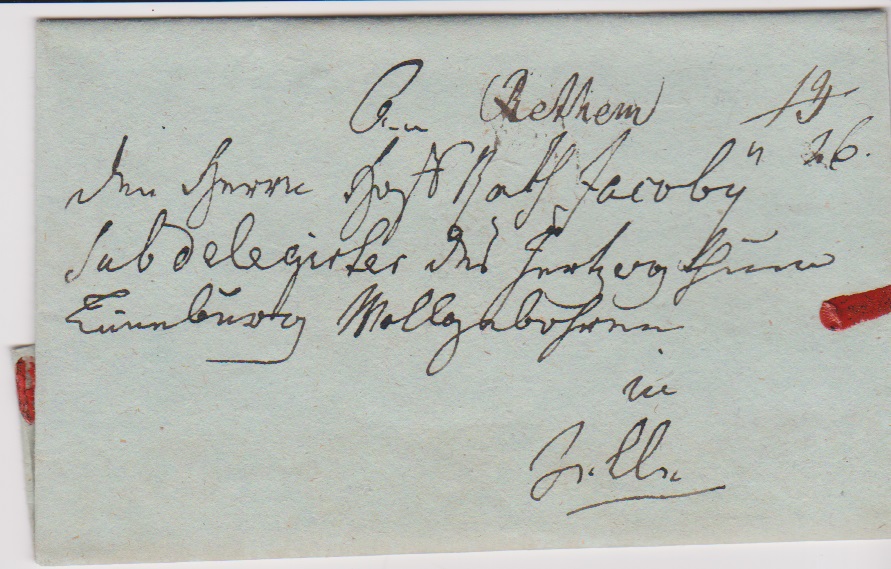 An Rethem 19
den Herrn Hoff Rath Jacoby 26.
Subdelegirter des Hertzogthum
Lüneburg Wollgebohren
in
Zelle